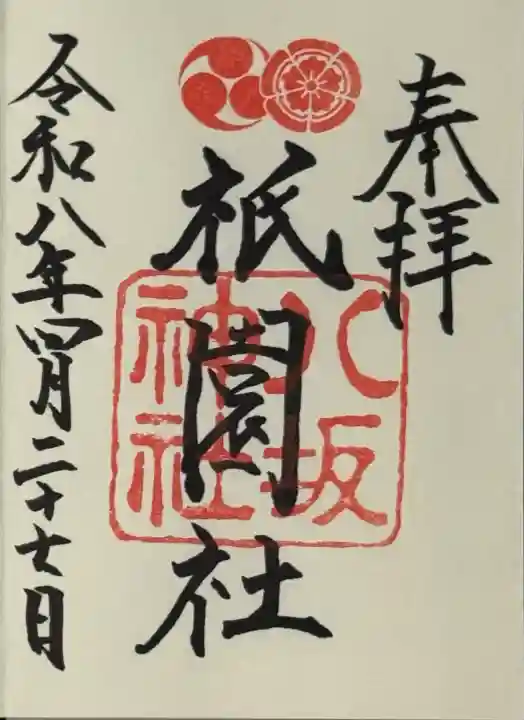 奉拝
八坂
神社
祇園社
令和八年四月二十七日